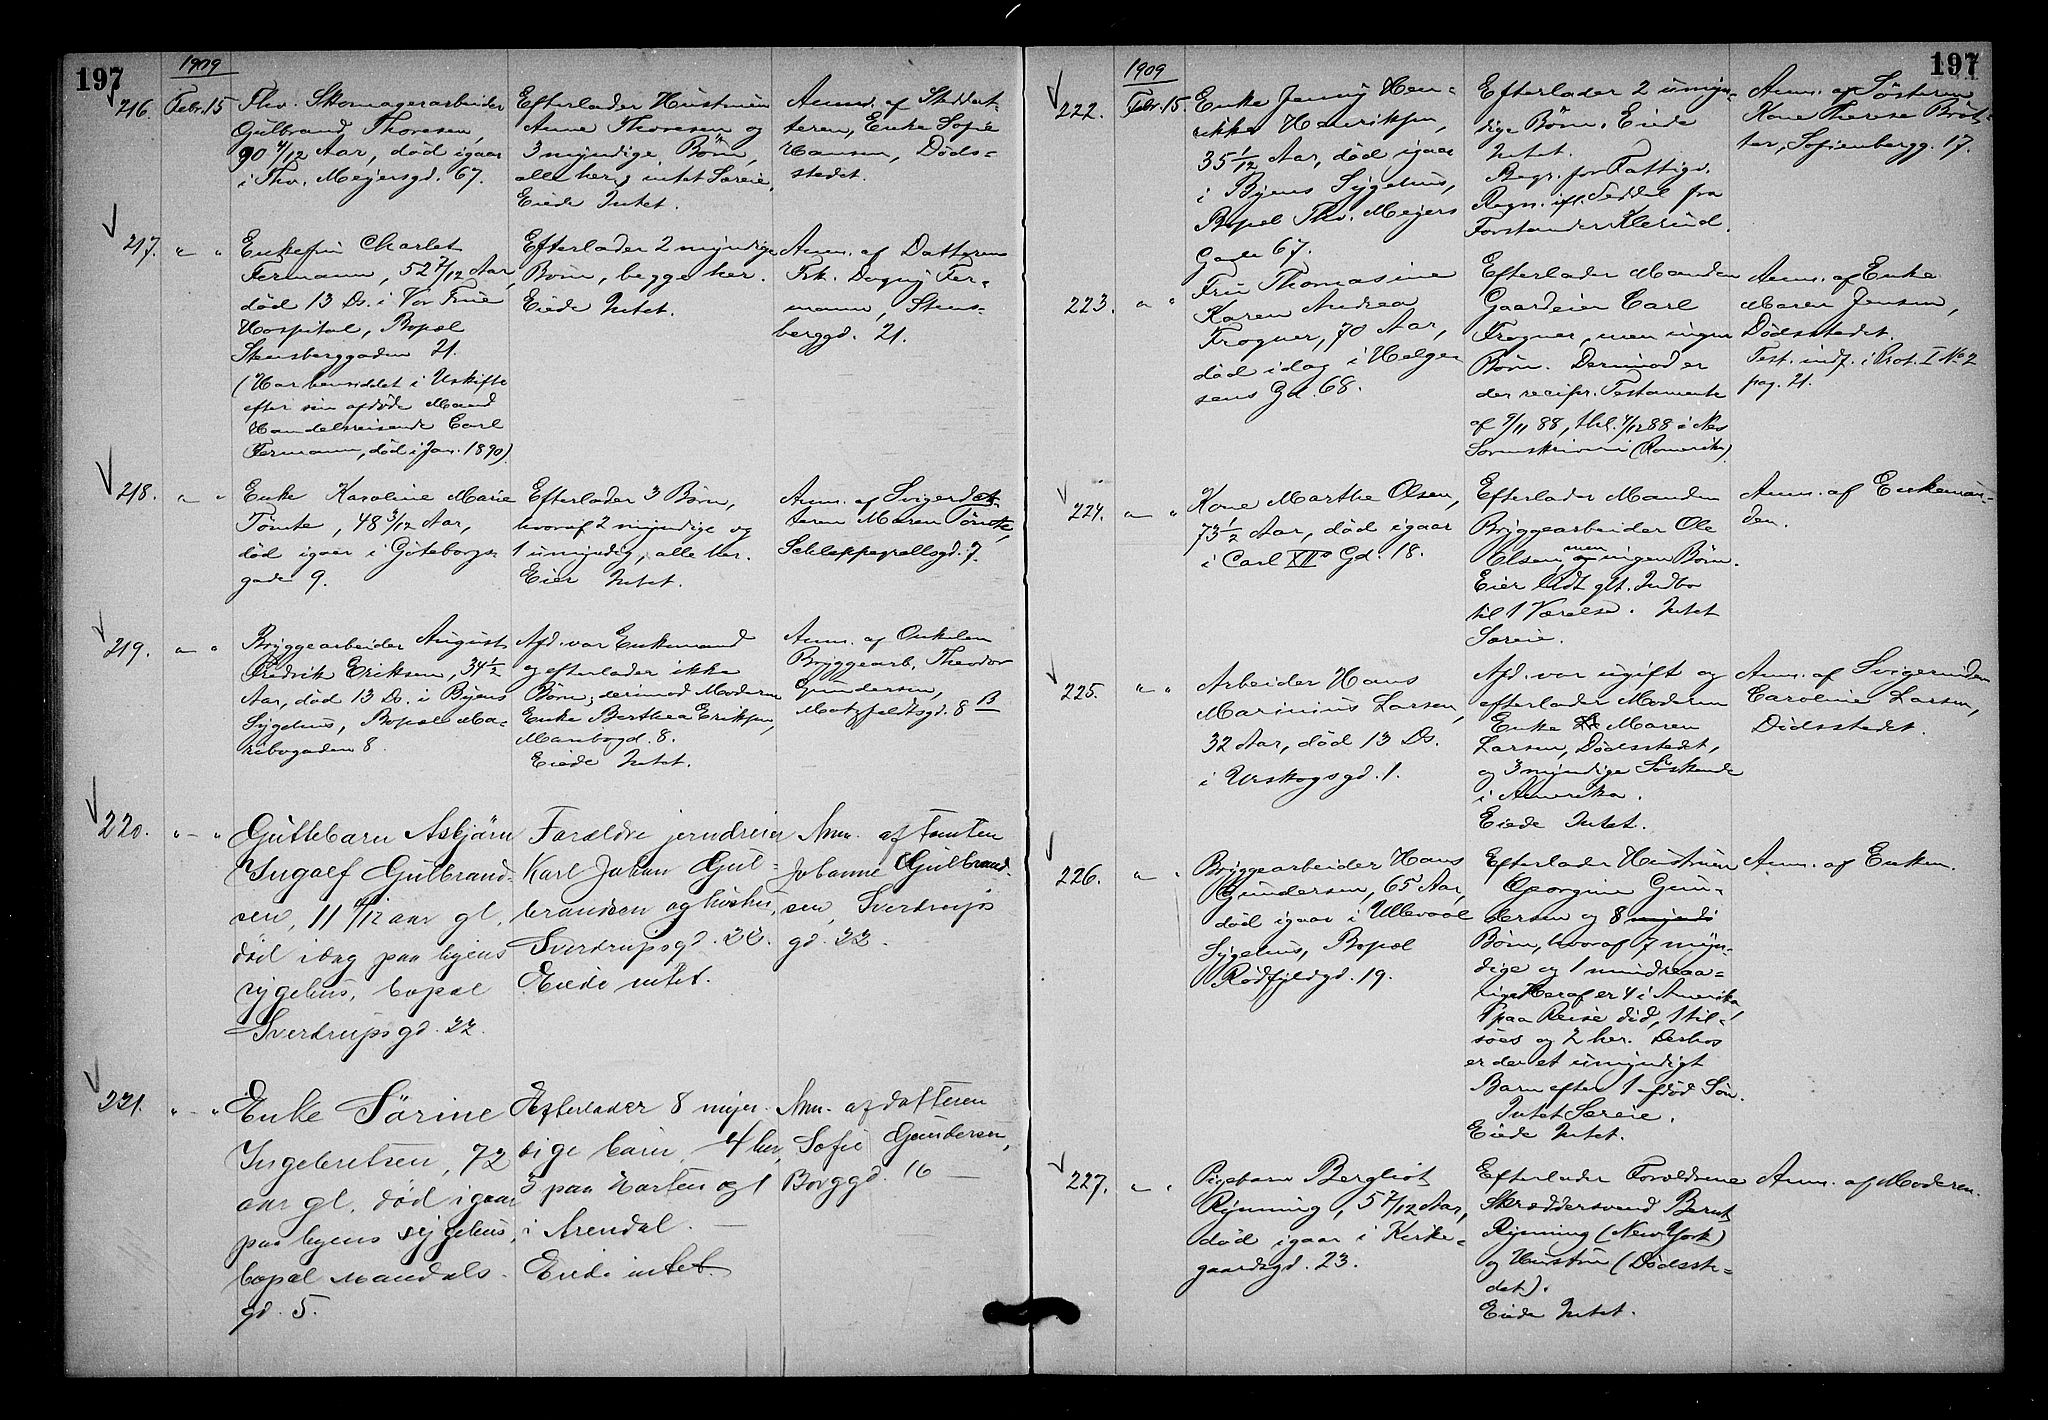 197
1909
216. Febr. 15
Fhv. Skomagerarbeider
Gulbrand Thoresen,
90 4/12 Aar, død igaar
i Thv. Meyersgd. 67.
Efterlader Hustruen
Anne Thoresen og
3 myndige Børn,
alle her, intet Særeie,
Eiede Intet.
Anm. af Steddat-
teren, Enke Sofie
Hansen, Døds-
stedet.
217. " "
Enkefru Charlot
Fermann, 52 7/12 Aar,
død 13 Ds. i Vor Frue
Hospital, Bopæl
Stensberggaden 21.
(Har hensiddet i Uskifte
efter sin afdøde Mand
Handelsreisende Carl
Fermann, død i Jan. 1890).
Efterlader 2 myndige
Børn, begge her.
Eiede Intet.
Anm. af Datteren
Frk. Dagny Fer-
mann, Stens-
berggd. 21.
218. " "
Enke Karoline Marie
Tømte, 48 3/12 Aar,
død igaar i Göteborgs-
gade 9.
Efterlader 3 Børn,
hvoraf 2 myndige og
1 umyndig, alle her.
Eier Intet.
Anm. af Svigerdat-
teren Maren Tømte,
Schleppegrellsgd. 7.
219. " "
Bryggearbeider August
Fredrik Eriksen, 34 1/2
Aar, død 13 Ds. i Byens
Sygehus, Bopæl Ma-
ribogaden 8.
Afd. var Enkemand
og efterlader ikke
Børn; derimod Moderen
Enke Berthea Eriksen,
Maribogd. 8.
Eiede Intet.
Anm. af Onkelen
Bryggearb. Theodor
Gundersen,
Motzfeldtsgd. 8 B
220. " - "
Guttebarn Asbjørn
Ingolf Gulbrand-
sen, 11/12 aar gl.
død idag paa byens
sygehus, bopæl
Sverdrupsgd. 22.
Forældre jerndreier
Karl Johan Gul-
brandsen og hustru,
Sverdrupsgd. 22.
Eiede intet.
Anm. af tanten
Johanne Gulbrand-
sen, Sverdrups
gd. 22.
221. " - "
Enke Sørine
Ingebretsen, 72
aar gl. død igaar
paa byens sygehus,
bopæl Mandals-
gd. 5.
Efterlader 8 myn-
dige barn, 4 her,
3 paa Horten og 1
i Arendal. —
Eiede intet.
Anm. af datteren
Sofie Gundersen,
Borggd. 16 —
197
1909
222. Febr. 15.
Enke Jenny Hen-
rikke Henriksen,
35 1/12 Aar, død igaar
i Byens Sygehus,
Bopæl Thv. Meyers
Gade 67.
Efterlader 2 umyn-
dige Børn. Eiede
Intet.
Begr. for Fattigv.
Regn. ifl. Seddel fra
Forstander Klerud.
Anm. af Søsteren
Kone Therese Brøt-
ter, Sofienbergg. 17.
223. " "
Fru Thomasine
Karen Andrea
Frogner, 70 Aar,
død idag i Helge-
sens Gd. 68.
Efterlader Manden
Gaardeier Carl
Frogner, men ingen
Børn. Derimod er
der recipr. Testamente
af 9/11 88, thl. 4/12 88 i Nes
Sorenskriveri (Romerike).
Anm. af Enke
Maren Jensen,
Dødsstedet.
Test. indf. i Prot. I No 2
pag. 21.
224. " "
Kone Marthe Olsen,
73 1/2 Aar, død igaar
i Carl XIIs Gd. 18.
Efterlader Manden
Bryggearbeider Ole
Olsen, men ingen Børn.
Eier lidt glt. Indbo
til 1 Værelse. Intet
Særeie.
Anm. af Enkeman-
den.
225. " "
Arbeider Hans
Marinius Larsen,
32 Aar, død 13 Ds.
i Urskogsgd. 1.
Afd. var ugift og
efterlader Moderen
Enke Maren
Larsen, Dødsstedet,
og 3 myndige Søskende
i Amerika.
Eiede Intet.
Anm. af Svigerinden
Caroline Larsen,
Dødsstedet.
226. " "
Bryggearbeider Hans
Gundersen, 65 Aar,
død igaar i Ullevaal
Sygehus, Bopæl
Rødfyldgd. 19.
Efterlader Hustruen
Georgine Gun-
dersen og 8 myndi
Børn, hvoraf 7 myn-
dige og 1 mindreaa-
rige. Heraf er 4 i Amerika,
1 paa Reise did, 1 til-
søes og 2 her. Deshos
er der et umyndigt
Barn efter 1 død Søn.
Intet Særeie.
Eiede Intet.
Anm. af Enken.
227. " "
Pigebarn Bergliot
Rynning, 5 7/12 Aar,
død igaar i Kirke-
gaardsgd. 23.
Efterlader Forældrene
Skræddersvend Bernt
Rynning (New York)
og Hustru (Dødsste-
det).
Eiede Intet.
Anm. af Moderen.